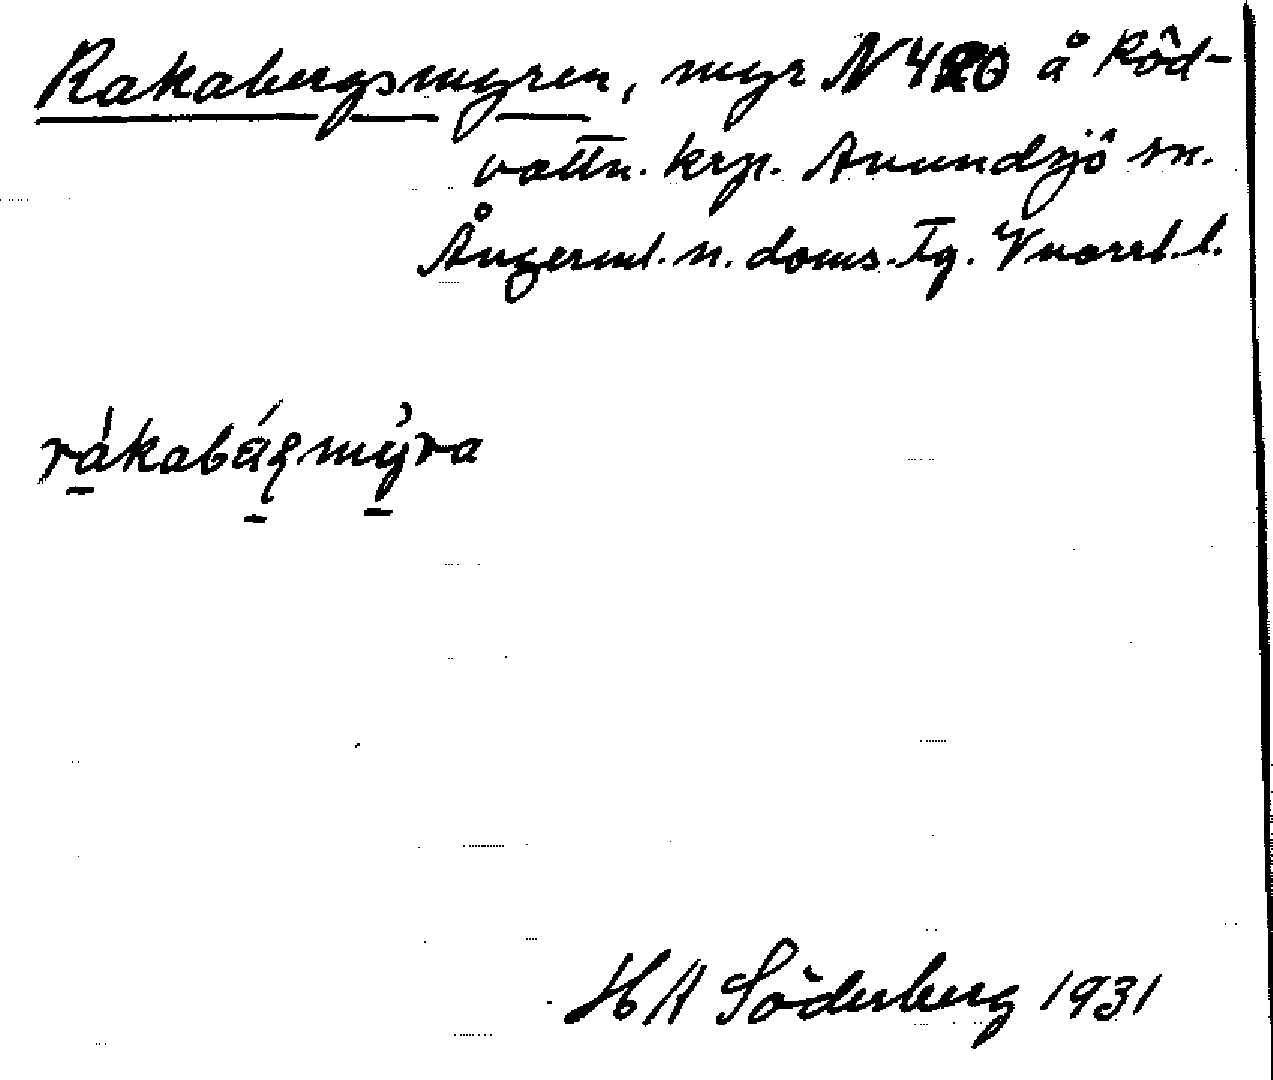 Rakabergsmyren, myr N 420 å Röd-
vattn. krp. Anundsjö sn.
Ångerml. n. doms. Tg. Vnorrl. l.
rákabáqmýra
HA Söderberg 1931